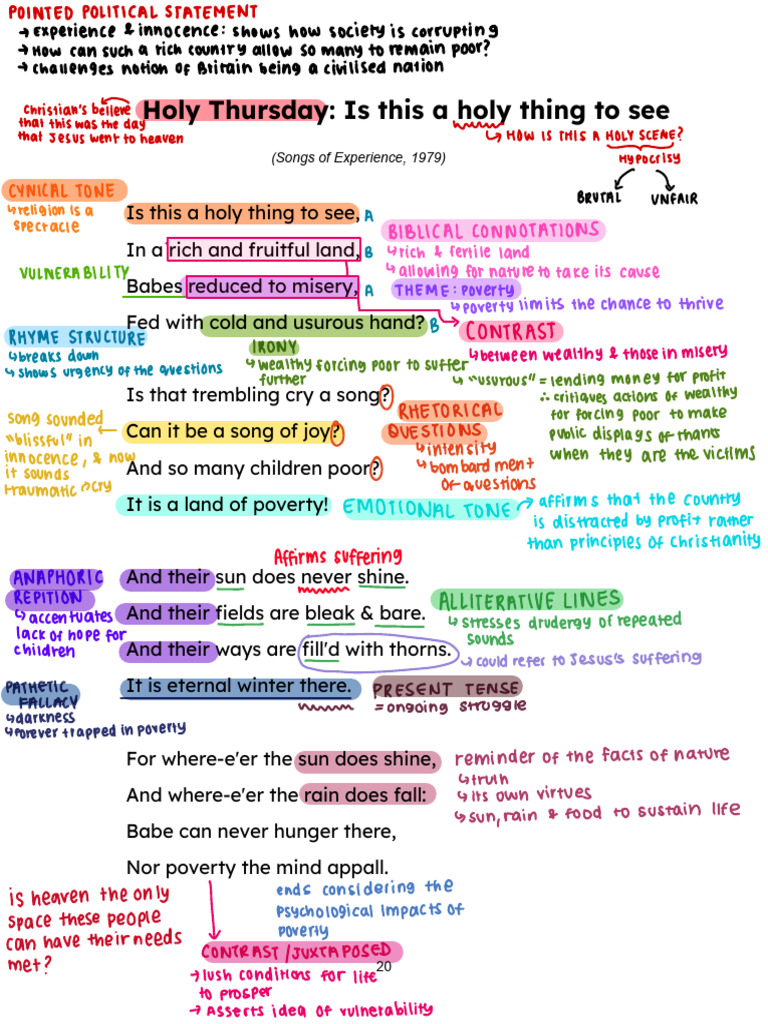 POINTED POLITICAL STATEMENT
→ Experience & innocence: shows how society is corrupting
→ How can such a rich country allow so many to remain poor?
→ challenges notion of Britain being a civilised nation
Christian's believe
that this was the day
that Jesus went to heaven
Holy Thursday: Is this a holy thing to see
↳ HOW IS THIS A HOLY SCENE?
HYPOCRISY
BRUTAL UNFAIR
(Songs of Experience, 1979)
CYNICAL TONE
↳ religion is a
spectacle
Is this a holy thing to see, A
In a rich and fruitful land, B
BIBLICAL CONNOTATIONS
↳ rich & fertile land
↳ allowing for nature to take its cause
VULNERABILITY
Babes reduced to misery, A
THEME: Poverty
↳ poverty limits the chance to thrive
Fed with cold and usurous hand? B
CONTRAST
↳ between wealthy & those in misery
RHYME STRUCTURE
↳ breaks down
↳ shows urgency of the questions
IRONY
↳ wealthy forcing poor to suffer
further
↳ "usurous" = lending money for profit
∴ critiques actions of wealthy
for forcing poor to make
public displays of thanks
when they are the victims
Is that trembling cry a song?
Can it be a song of joy?
And so many children poor?
It is a land of poverty!
song sounded
"blissful" in
innocence, & now
it sounds
traumatic → cry
RHETORICAL
QUESTIONS
↳ intensity
↳ bombardment
of questions
EMOTIONAL TONE
→ affirms that the country
is distracted by profit rather
than principles of Christianity
Affirms suffering
ANAPHORIC
REPITION
↳ accentuates
lack of hope for
children
And their sun does never shine.
And their fields are bleak & bare.
And their ways are fill'd with thorns.
It is eternal winter there.
ALLITERATIVE LINES
↳ stresses drudergy of repeated
sounds
↳ could refer to Jesus's suffering
PATHETIC
FALLACY
↳ darkness
↳ forever trapped in poverty
PRESENT TENSE
= ongoing struggle
For where-e'er the sun does shine,
And where-e'er the rain does fall:
Babe can never hunger there,
Nor poverty the mind appall.
reminder of the facts of nature
↳ truth
↳ its own virtues
↳ sun, rain & food to sustain life
is heaven the only
space these people
can have their needs
met?
ends considering the
psychological impacts of
poverty
CONTRAST/JUXTAPOSED
→ lush conditions for life
to prosper
→ Asserts idea of vulnerability
20